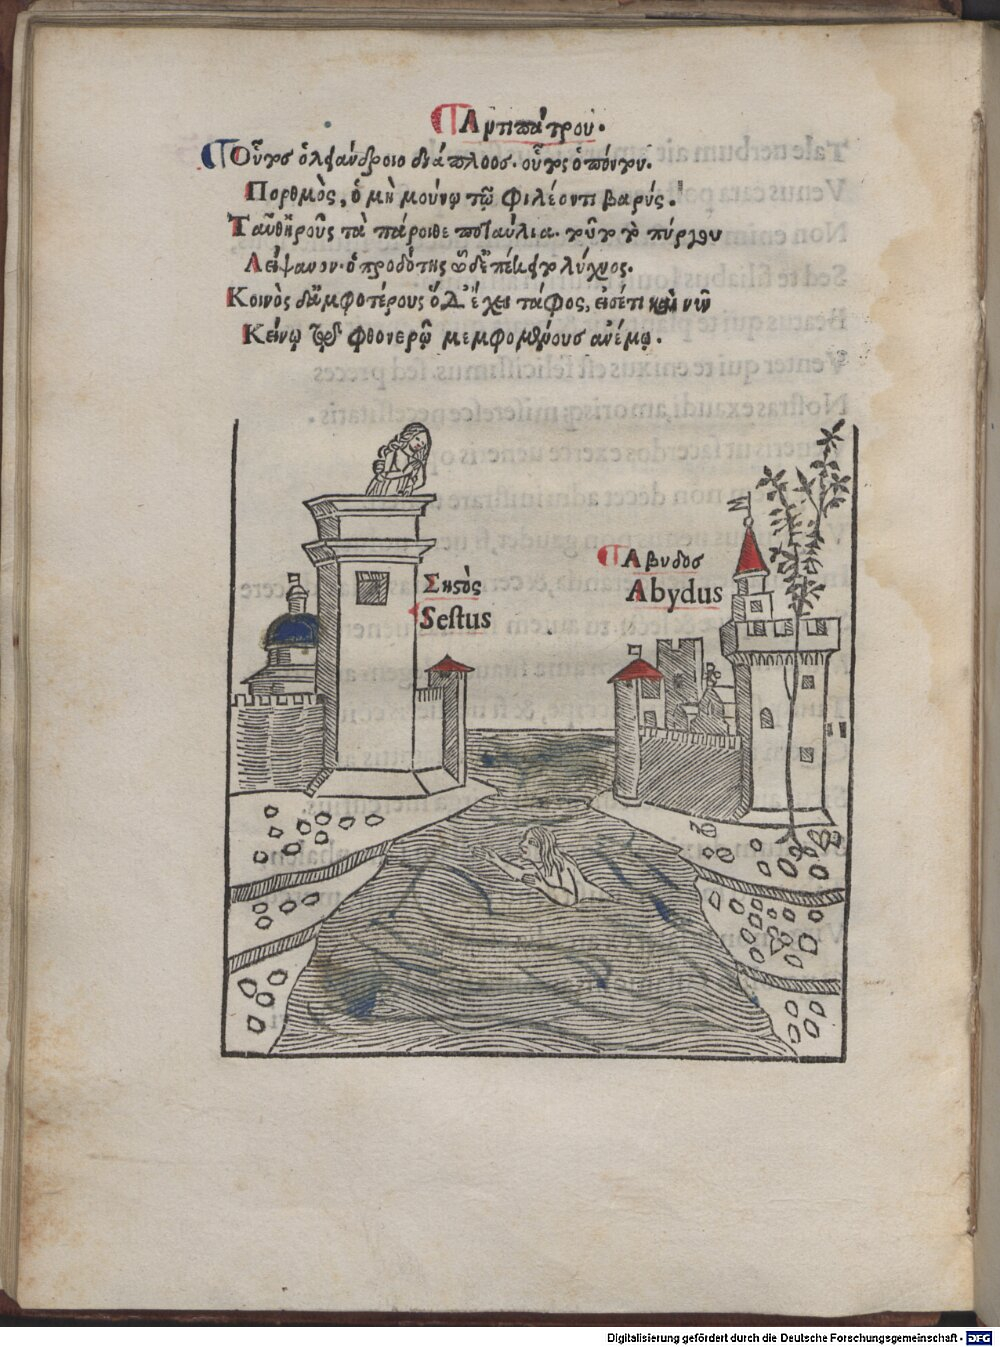 Ἀντιπάτρου.
Οὗτος ὁ λεάνδροιο διάπλοος. οὗτος ὁ πόντου.
Πορθμὸς, ὁ μὴ μούνῳ τῷ φιλέοντι βαρύς.
Ταῦθ' ἡροῦς τὰ πάροιθε ἐπαύλια. τοῦτο τὸ πύργου
Λείψανον. ὁ προδότης ὧδ' ἐπέκειτο λύχνος.
Κοινὸς δ' ἀμφοτέρους ὅδ' ἔχει τάφος, εἰσέτι καὶ νῦν
Κείνῳ τῷ φθονερῷ μεμφομένους ἀνέμῳ.
Σηστὸς
Sestus
Αβυδοσ
Abydus
Digitalisierung gefördert durch die Deutsche Forschungsgemeinschaft - DFG